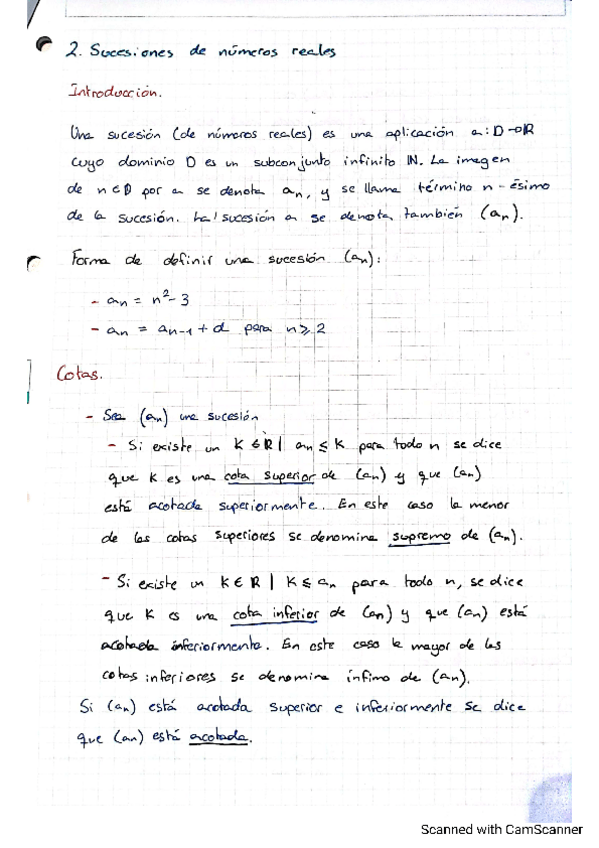 2. Sucesiones de números reales
Introducción.
Una sucesión (de números reales) es una aplicación a: D→ℝ
cuyo dominio D es un subconjunto infinito ℕ. La imagen
de n∈D por a se denota aₙ, y se llama término n-ésimo
de la sucesión. La sucesión a se denota también (aₙ).
Forma de definir una sucesión (aₙ):
- aₙ = n²-3
- aₙ = aₙ₋₁ + d para n≥2
Cotas.
- Sea (aₙ) una sucesión
- Si existe un K∈ℝ | aₙ ≤ K para todo n se dice
que K es una cota superior de (aₙ) y que (aₙ)
está acotada superiormente. En este caso la menor
de las cotas superiores se denomina supremo de (aₙ).
- Si existe un K∈ℝ | K ≤ aₙ para todo n, se dice
que K es una cota inferior de (aₙ) y que (aₙ) está
acotada inferiormente. En este caso la mayor de las
cotas inferiores se denomina ínfimo de (aₙ).
Si (aₙ) está acotada superior e inferiormente se dice
que (aₙ) está acotada.
Scanned with CamScanner